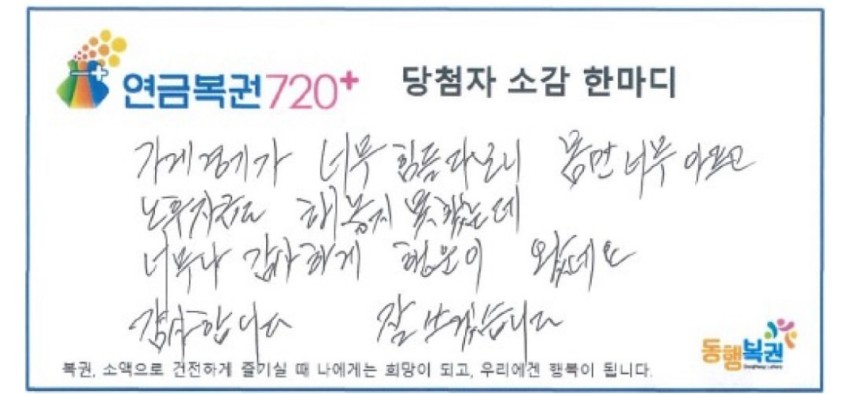 연금복권720+ 당첨자 소감 한마디
가게 경기가 너무 힘듬다보니 몸만 너무 아프고
노후자금도 해놓지 못했는데
너무나 감사하게 행운이 왔네요
감사합니다 잘 쓰겠습니다
동행복권
복권, 소액으로 건전하게 즐기실 때 나에게는 희망이 되고, 우리에겐 행복이 됩니다.